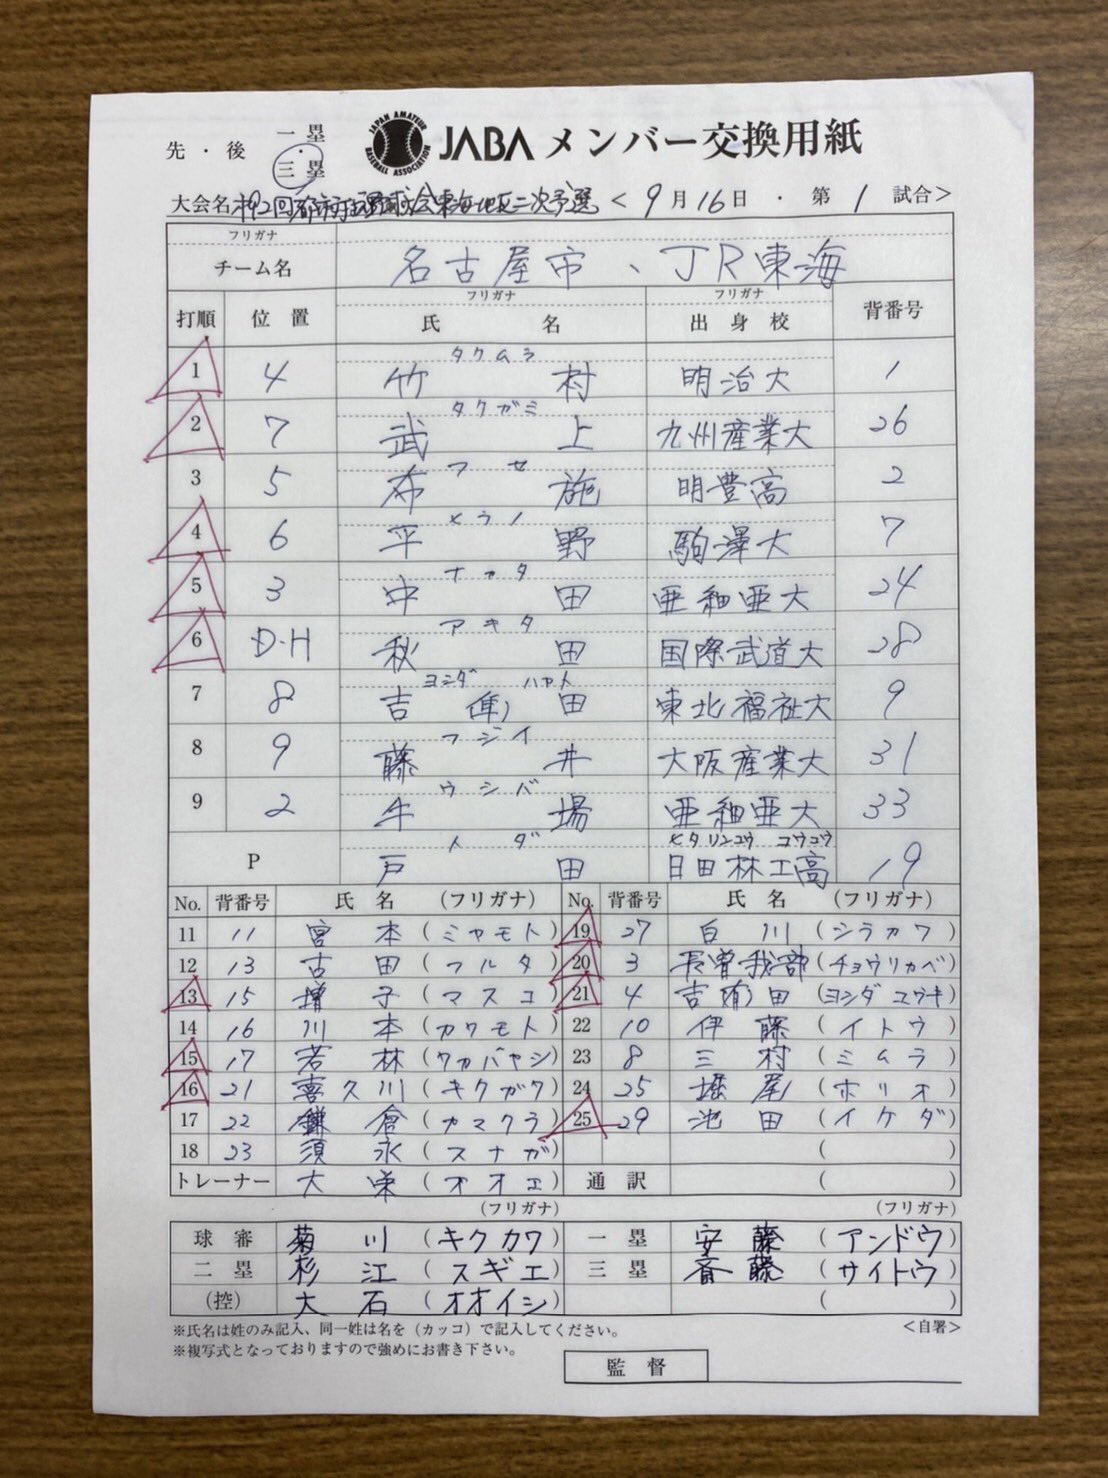 先・後 一塁・三塁
JAPAN AMATEUR BASEBALL ASSOCIATION JABA メンバー交換用紙
大会名 回都市対抗野球大会東海地区二次予選 <9月16日・第1試合>
フリガナ
チーム名 名古屋市、JR東海
フリガナ フリガナ
打順 位置 氏名 出身校 背番号
タケムラ
1 4 竹村 明治大 1
タケガミ
2 7 武上 九州産業大 26
フセ
3 5 布施 明豊高 2
ヒラノ
4 6 平野 駒澤大 7
ナカタ
5 3 中田 亜細亜大 24
アキタ
6 D・H 秋田 国際武道大 28
ヨシダ ハヤト
7 8 吉田(隼) 東北福祉大 9
フジイ
8 9 藤井 大阪産業大 31
ウシバ
9 2 牛場 亜細亜大 33
トダ ヒタリンコウ コウコウ
P 戸田 日田林工高 19
No. 背番号 氏名 (フリガナ) No. 背番号 氏名 (フリガナ)
11 11 宮本(ミヤモト) 19 27 白川(シラカワ)
12 13 古田(フルタ) 20 3 長曽我部(チョウソカベ)
13 15 増子(マスコ) 21 4 吉田(ヨシダ ユウキ)
14 16 川本(カワモト) 22 10 伊藤(イトウ)
15 17 若林(ワカバヤシ) 23 8 三村(ミムラ)
16 21 喜久川(キクガワ) 24 25 堀尾(ホリオ)
17 22 鎌倉(カマクラ) 25 29 池田(イケダ)
18 23 須永(スナガ) ( )
トレーナー 大栄(オオエ) 通訳 ( )
(フリガナ) (フリガナ)
球審 菊川(キクカワ) 一塁 安藤(アンドウ)
二塁 杉江(スギエ) 三塁 斉藤(サイトウ)
(控) 大石(オオイシ) ( )
※氏名は姓のみ記入、同一姓は名を(カッコ)で記入してください。 <自署>
※複写式となっておりますので強めにお書き下さい。
監督